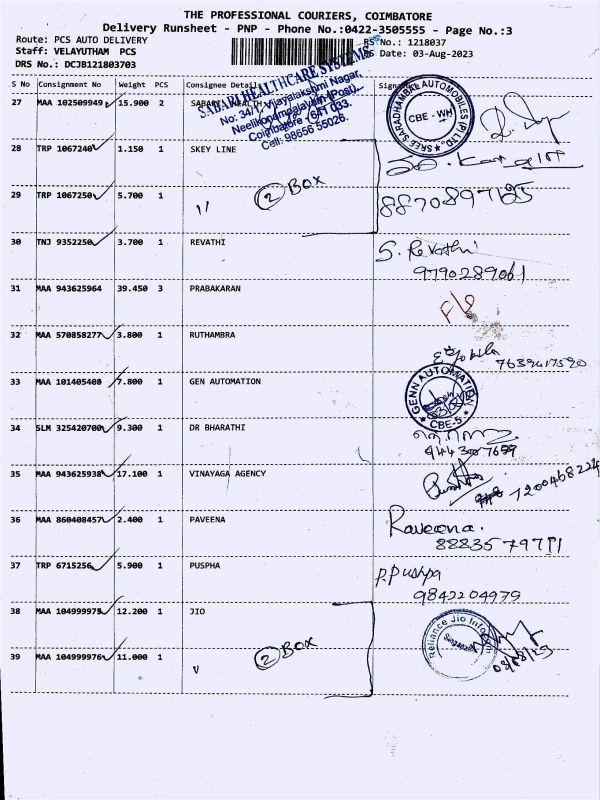 THE PROFESSIONAL COURIERS, COIMBATORE
Delivery Runsheet - PNP - Phone No.:0422-3505555 - Page No.:3
Route: PCS AUTO DELIVERY
RS No.: 1218037
Staff: VELAYUTHAM PCS
RS Date: 03-Aug-2023
DRS No.: DCJB121803703
S No Consignment No Weight PCS Consignee Details Signature
SABARI HEALTHCARE SYSTEMS
No: 34/1, Vijayalakshmi Nagar,
Neelikonampalayam (Post),
Coimbatore - 641 033.
Cell: 98656 55026.
27 MAA 102509949 15.900 2 SABARI HEALTH
SREE SARADHAMBAL AUTOMOBILES (P) LTD.
CBE - WH
28 TRP 1067240 1.150 1 SKEY LINE
29 TRP 1067250 5.700 1 "
2 BOX
8870897185
30 TNJ 9352250 3.700 1 REVATHI
S. Revathi
9790289061
31 MAA 943625964 39.450 3 PRABAKARAN
32 MAA 570858277 3.800 1 RUTHAMBRA
7639417590
33 MAA 101405408 7.800 1 GEN AUTOMATION
GENN AUTOMATION
CBE-5
34 SLM 325420700 9.300 1 DR BHARATHI
9443007659
35 MAA 943625938 17.100 1 VINAYAGA AGENCY
7200468224
36 MAA 860408457 2.400 1 PAVEENA
Raveena.
8883579711
37 TRP 6715256 5.900 1 PUSPHA
P. Pushpa
9842204979
38 MAA 104999975 12.200 1 JIO
2 BOX
Reliance Jio Infocom
39 MAA 104999976 11.000 1 "
03/08/23